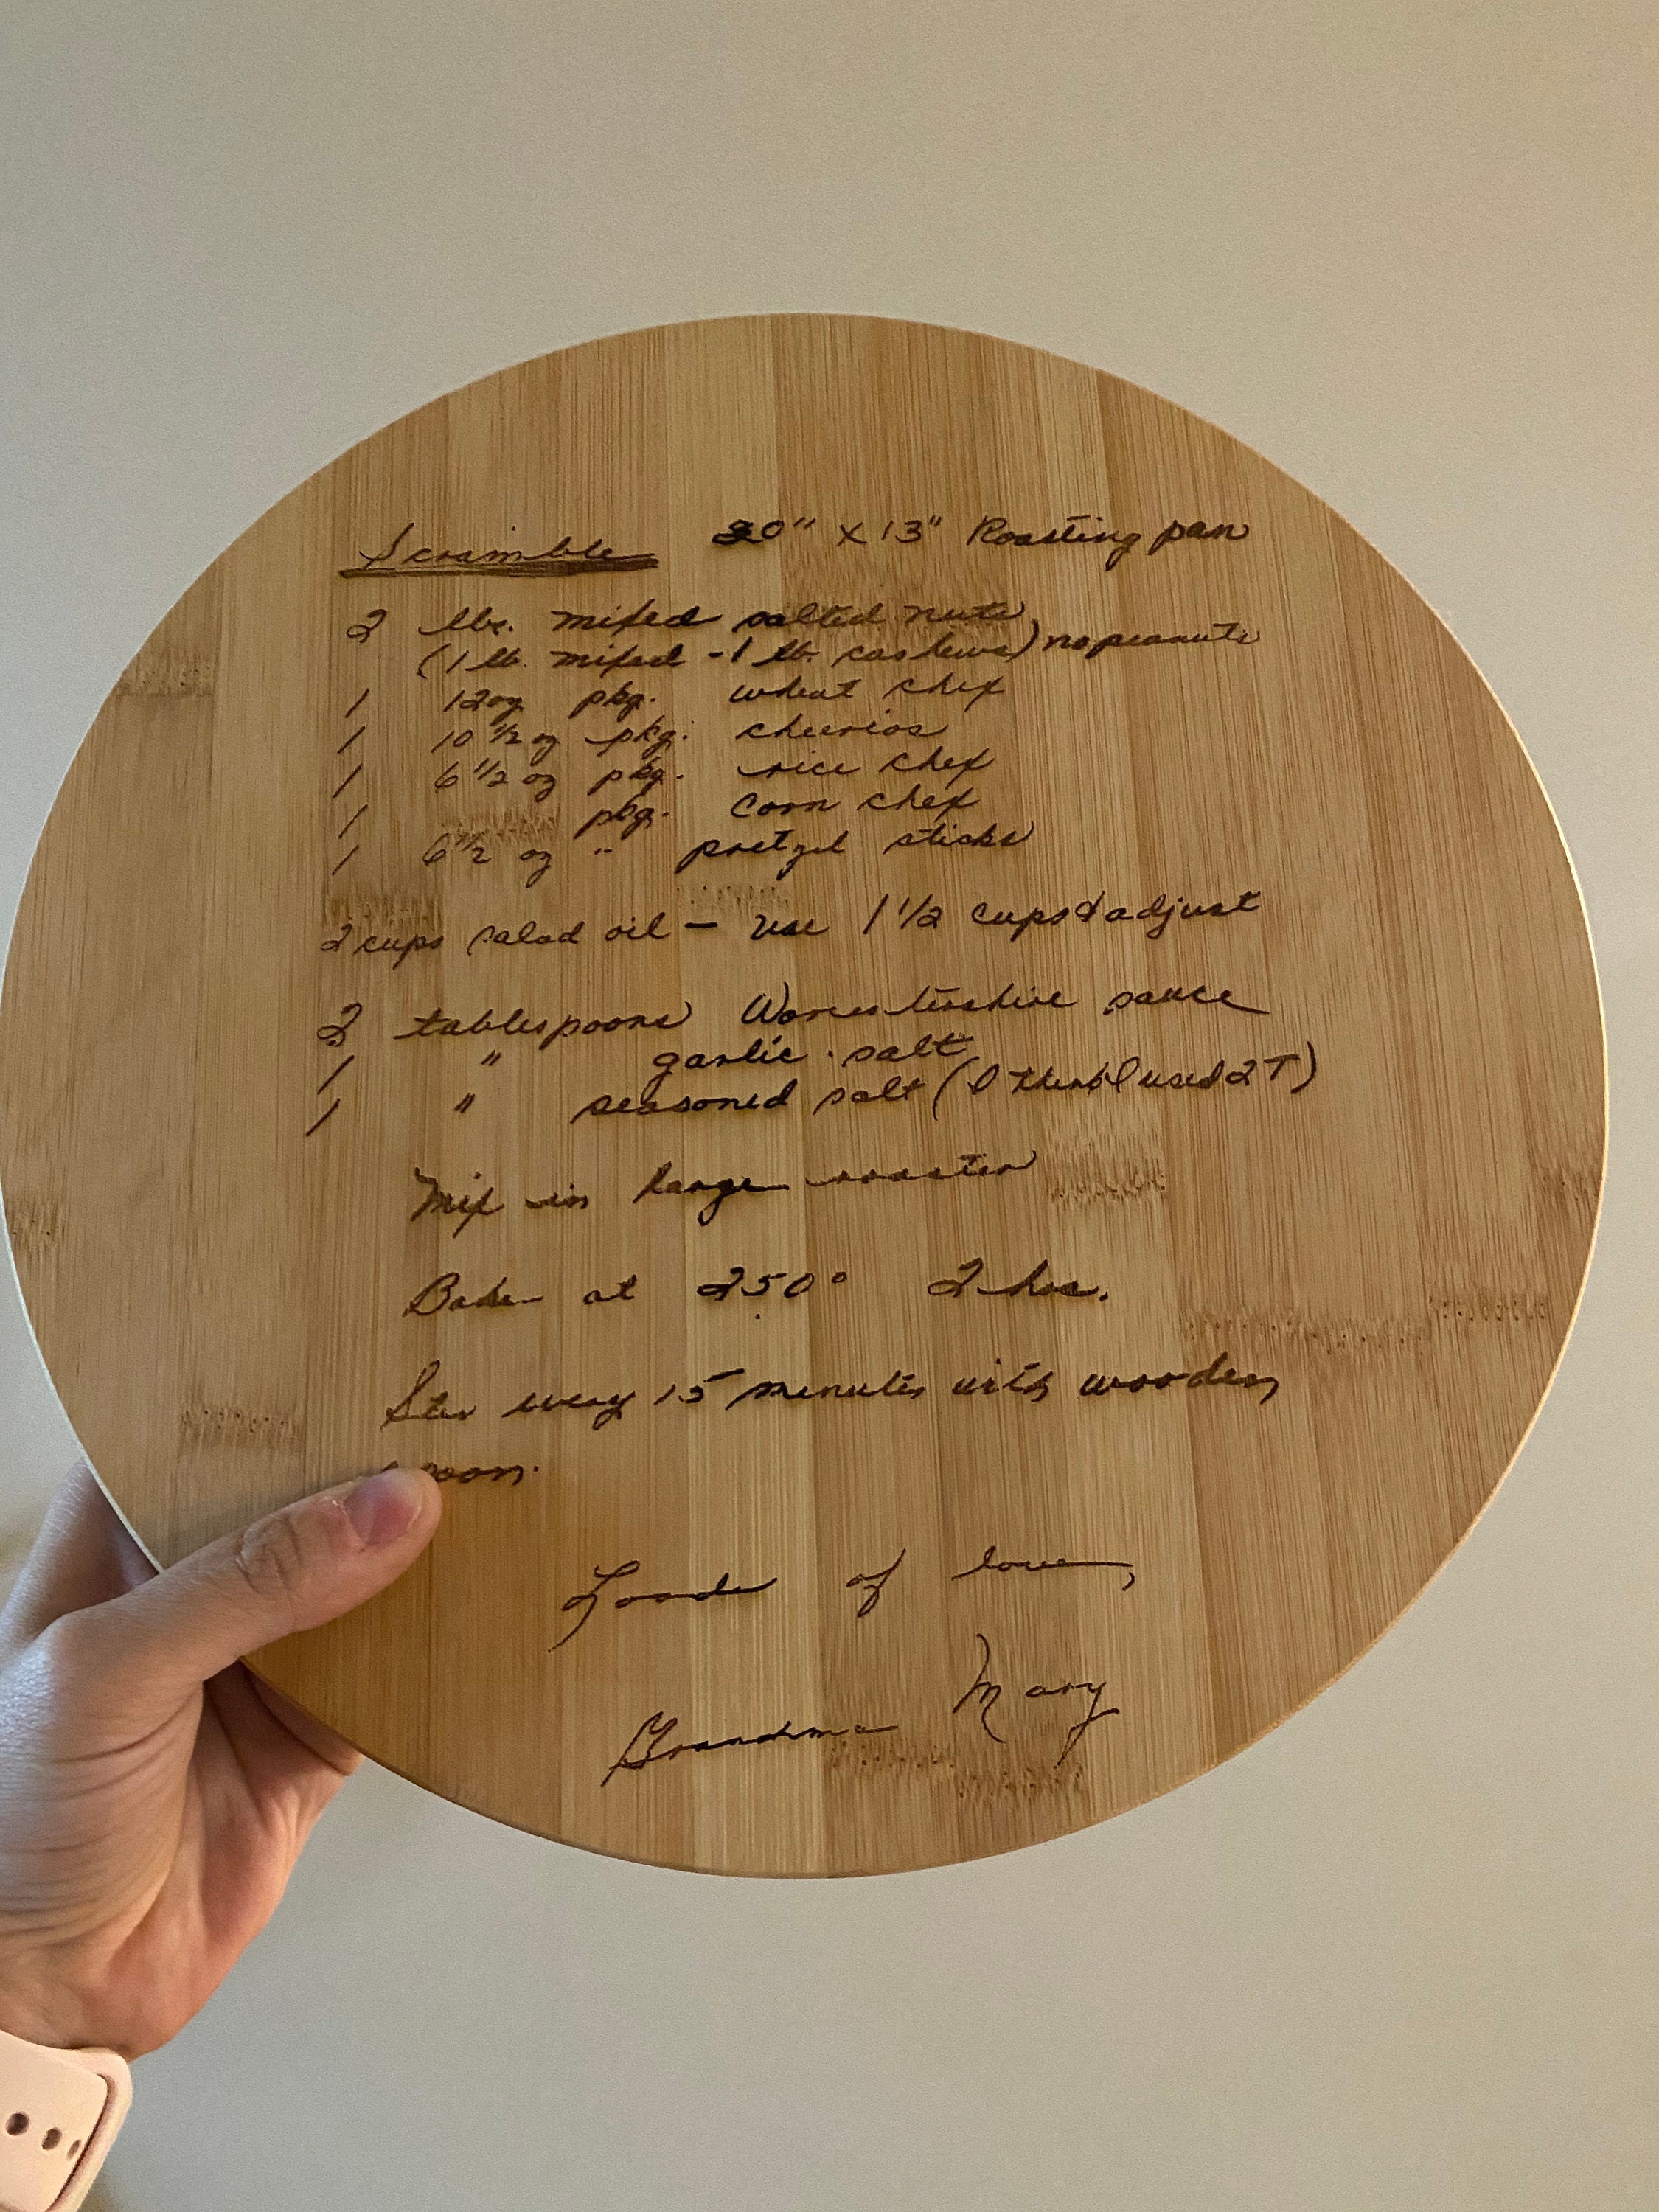 Scramble 20" X 13" Roasting pan
2 lbs. mixed salted nuts
(1 lb. mixed - 1 lb. cashews) no peanuts
1 12 oz pkg. wheat chex
1 10 1/2 oz pkg. cheerios
1 6 1/2 oz pkg. rice chex
1 pkg. corn chex
1 6 1/2 oz " pretzel sticks
2 cups salad oil — use 1 1/2 cups & adjust
2 tablespoons Worcestershire sauce
1 " garlic salt
1 " seasoned salt (I think I used 2 T)
Mix in large roaster
Bake at 250° 2 hrs.
Stir every 15 minutes with wooden
spoon.
Loads of love,
Grandma Mary